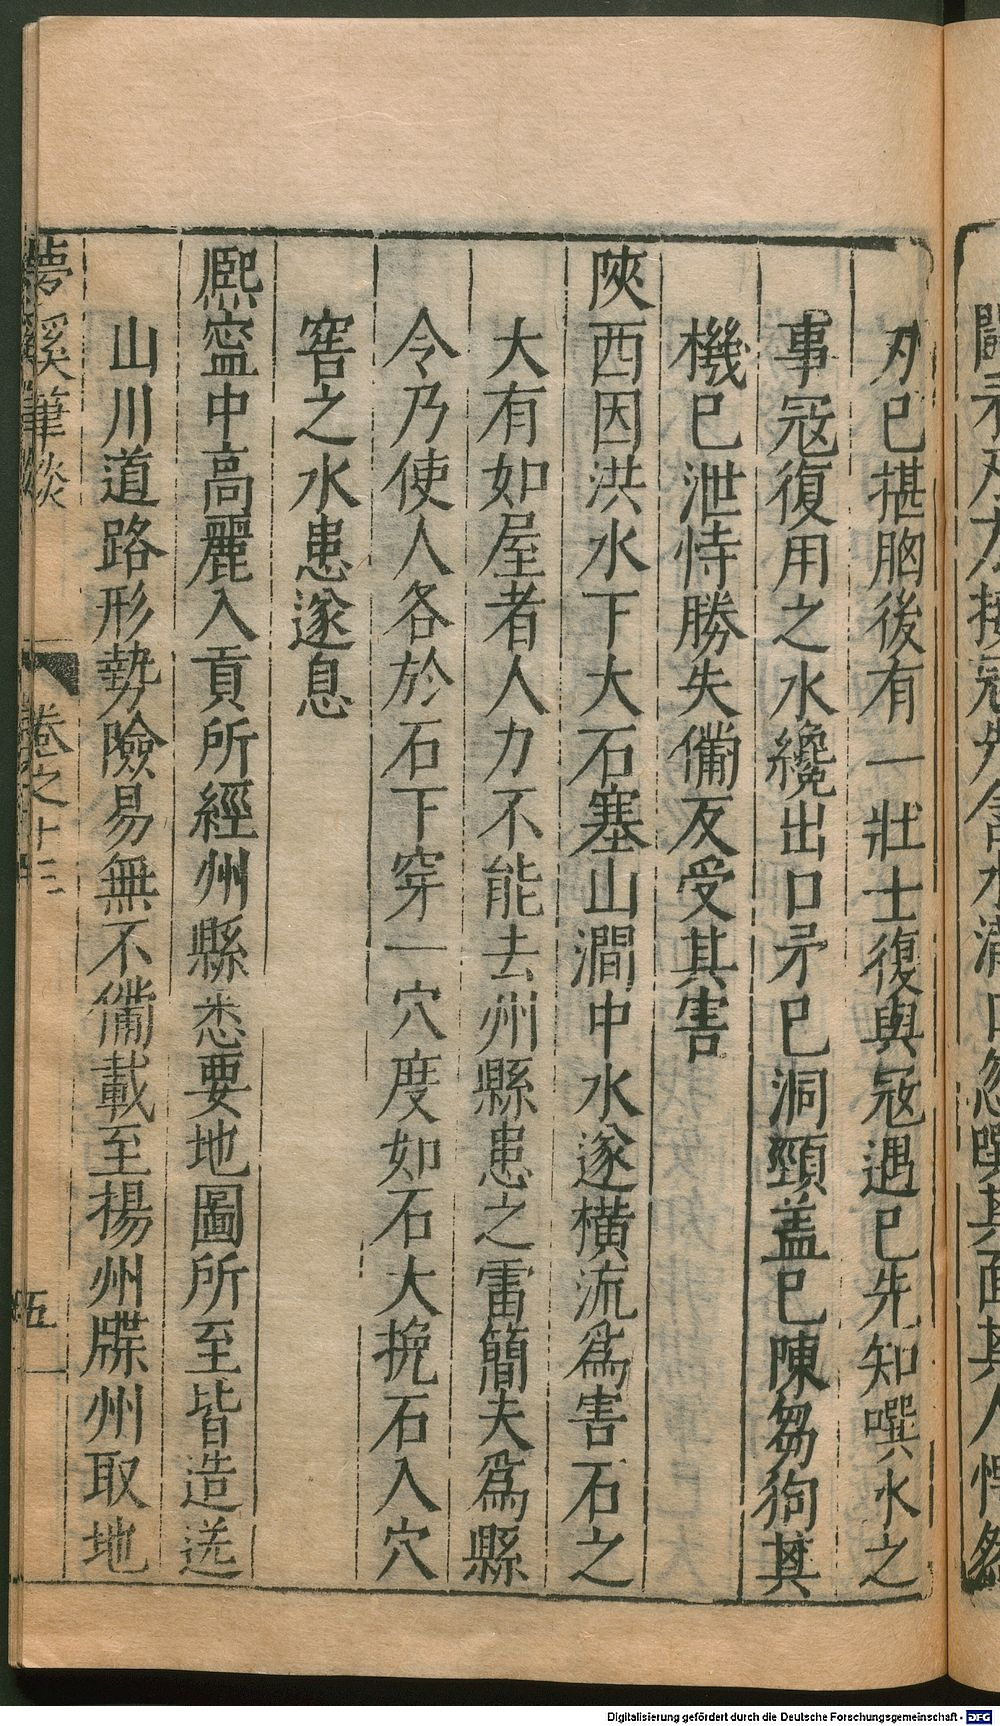 刃已揕胸後有一壯士復與冦遇已先知噀水之
事冦復用之水纔出口矛已洞頸盖已陳芻狗其
機已泄恃勝失俻反受其害
陝西因洪水下大石塞山澗中水遂橫流爲害石之
大有如屋者人力不能去州縣患之雷簡夫爲縣
令乃使人各於石下穿一穴度如石大挽石入穴
窖之水患遂息
熈寍中高麗入貢所經州縣悉要地圖所至皆造送
山川道路形勢險易無不俻載至揚州牒州取地
夢溪筆談 卷之十三 五
Digitalisierung gefördert durch die Deutsche Forschungsgemeinschaft - DFG